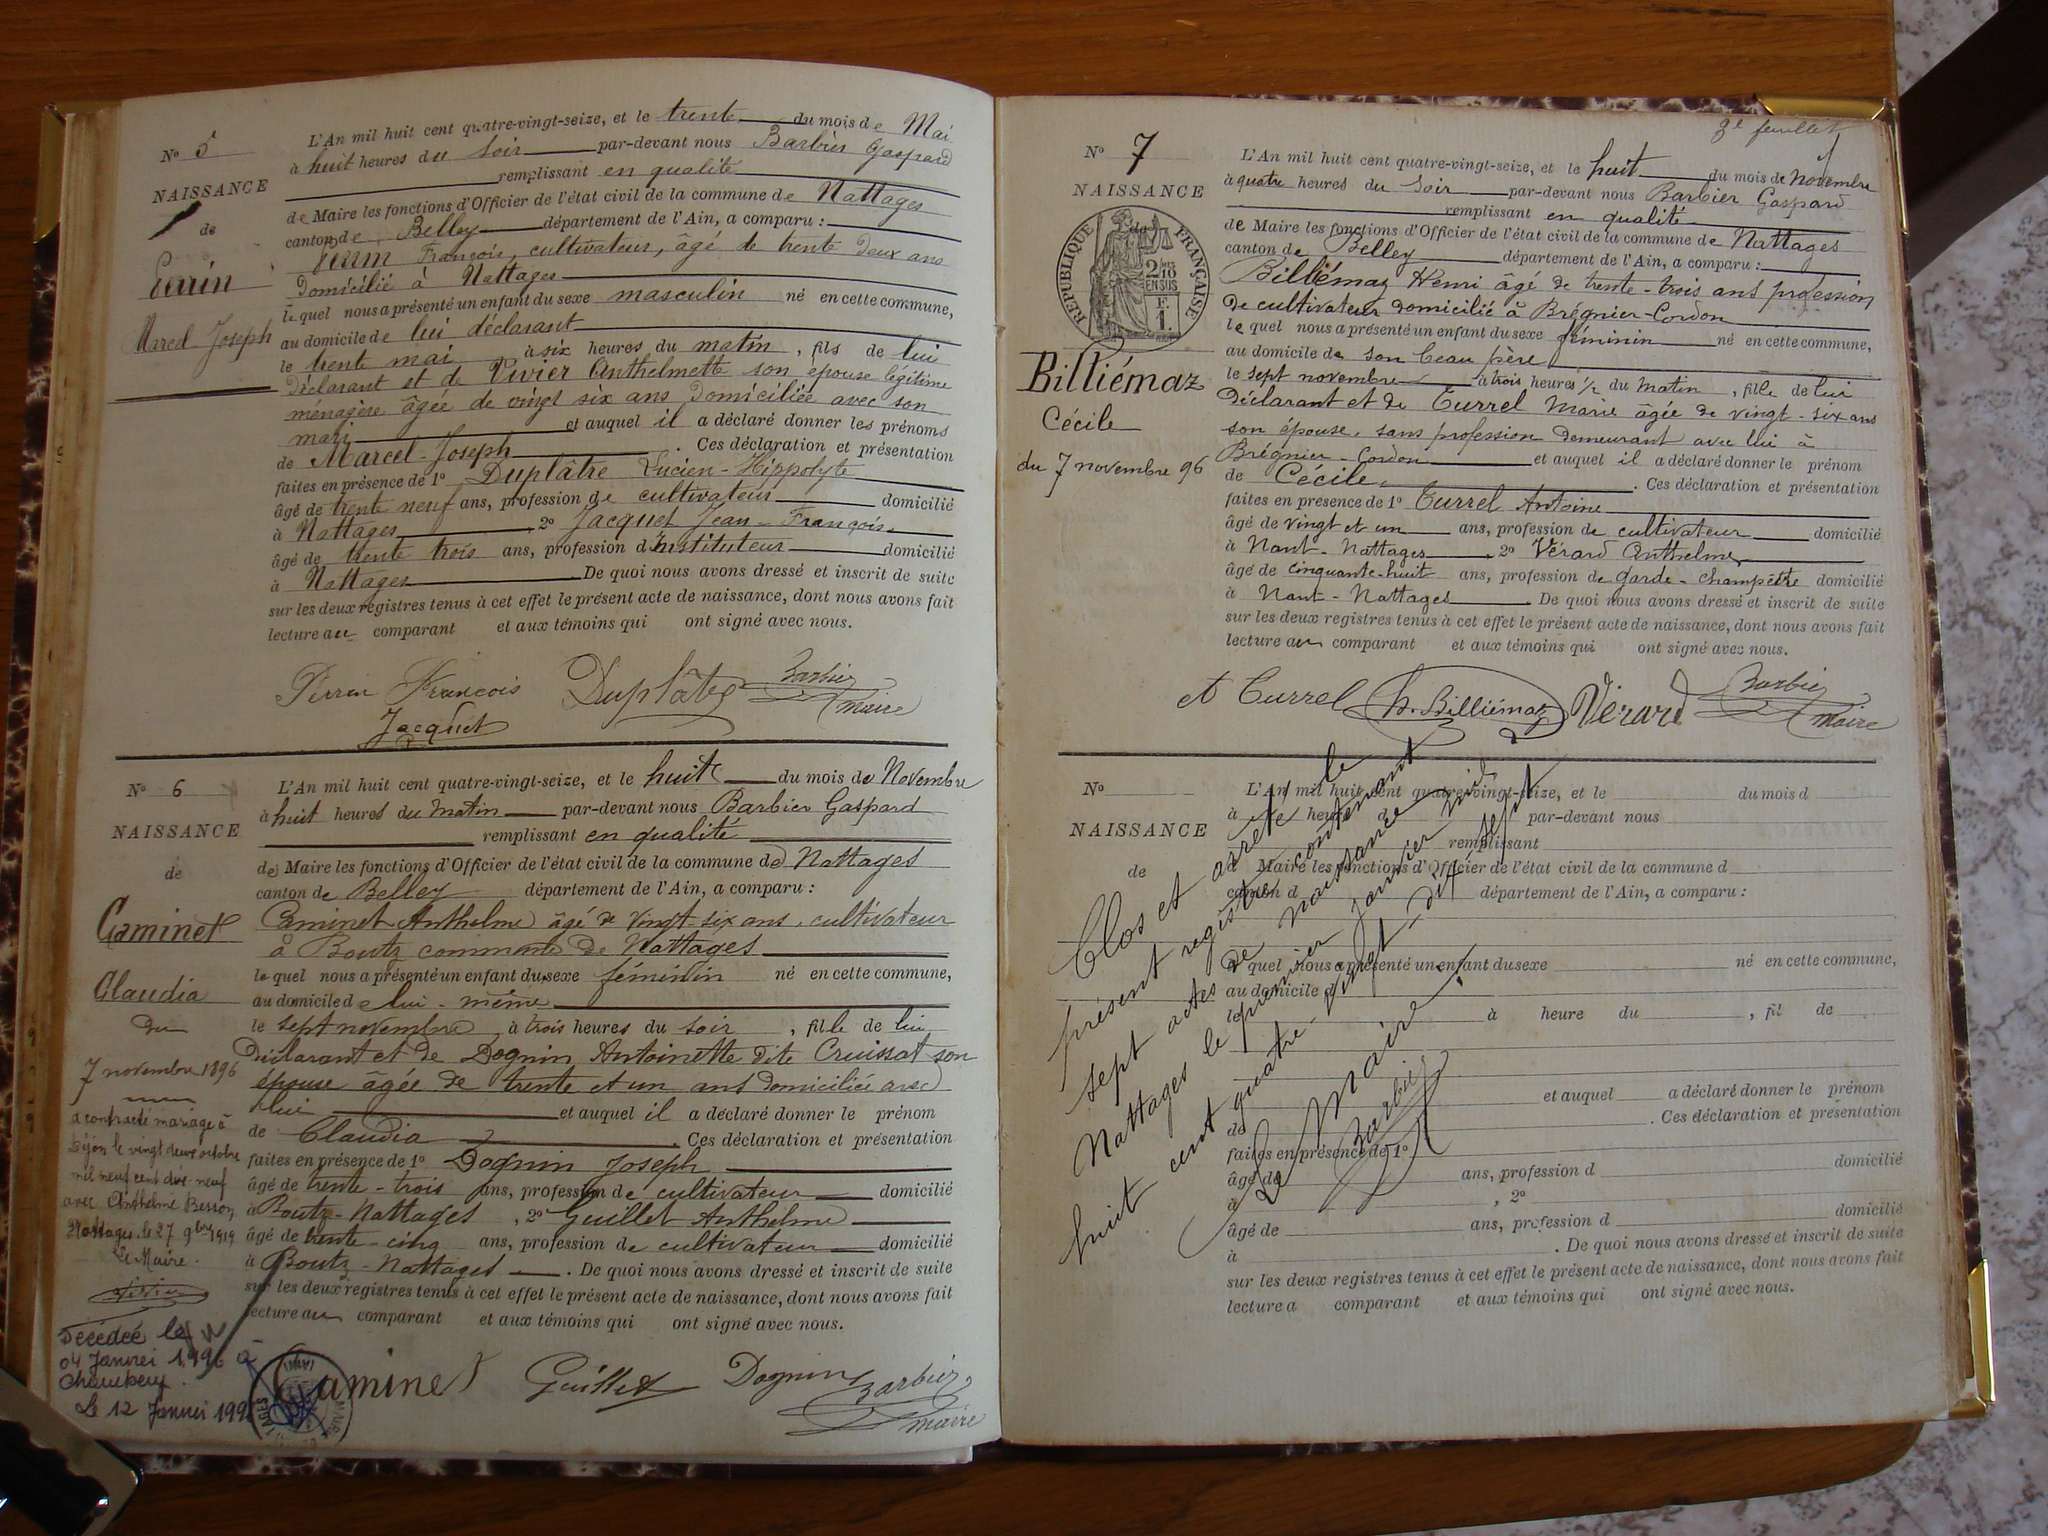 N° 5
NAISSANCE
de
Perrin
Marcel Joseph
L'An mil huit cent quatre-vingt-seize, et le trente du mois de Mai
à huit heures du soir par-devant nous Barbier Gaspard
remplissant en qualité
de Maire les fonctions d'Officier de l'état civil de la commune de Nattages
canton de Belley département de l'Ain, a comparu :
Perrin François, cultivateur, âgé de trente deux ans
Domicilié à Nattages
lequel nous a présenté un enfant du sexe masculin né en cette commune,
au domicile de lui déclarant
le trente mai à six heures du matin, fils de lui
Déclarant et de Vivier Anthelmette son épouse légitime
ménagère âgée de vingt six ans Domiciliée avec son
mari et auquel il a déclaré donner les prénoms
de Marcel-Joseph. Ces déclaration et présentation
faites en présence de 1° Duplâtre Lucien-Hippolyte
âgé de trente neuf ans, profession de cultivateur domicilié
à Nattages, 2° Jacquet Jean-François
âgé de trente trois ans, profession d'Instituteur domicilié
à Nattages De quoi nous avons dressé et inscrit de suite
sur les deux registres tenus à cet effet le présent acte de naissance, dont nous avons fait
lecture au comparant et aux témoins qui ont signé avec nous.
Perrin François Duplâtre Barbier
Jacquet maire
N° 6
NAISSANCE
de
Caminet
Claudia
du
7 novembre 1896
a contracté mariage à
Dijon le vingt deux octobre
mil neuf cent dix neuf
avec Anthelme Berson
Nattages le 27 9bre 1919
Le Maire.
Décédée le
04 Janvier 1996 à
Chambéry.
Le 12 Janvier 1996
L'An mil huit cent quatre-vingt-seize, et le huit du mois de Novembre
à huit heures du matin par-devant nous Barbier Gaspard
remplissant en qualité
de Maire les fonctions d'Officier de l'état civil de la commune de Nattages
canton de Belley département de l'Ain, a comparu :
Caminet Anthelme âgé de vingt-six ans, cultivateur
à Boutz commune de Nattages
lequel nous a présenté un enfant du sexe féminin né en cette commune,
au domicile de lui-même
le sept novembre à trois heures du soir, fille de lui
Déclarant et de Dognin Antoinette dite Cruissat son
épouse âgée de trente et un ans domiciliée avec
lui et auquel il a déclaré donner le prénom
de Claudia. Ces déclaration et présentation
faites en présence de 1° Dognin Joseph
âgé de trente-trois ans, profession de cultivateur domicilié
à Boutz-Nattages, 2° Guillet Anthelme
âgé de trente-cinq ans, profession de cultivateur domicilié
à Boutz-Nattages. De quoi nous avons dressé et inscrit de suite
sur les deux registres tenus à cet effet le présent acte de naissance, dont nous avons fait
lecture au comparant et aux témoins qui ont signé avec nous.
Caminet Guillet Dognin Barbier
maire
3e feuillet
N° 7
NAISSANCE
de
RÉPUBLIQUE FRANÇAISE
2/10 EN SUS
F.
1.
Billiémaz
Cécile
du 7 novembre 96
L'An mil huit cent quatre-vingt-seize, et le huit du mois de Novembre
à quatre heures du soir par-devant nous Barbier Gaspard
remplissant en qualité
de Maire les fonctions d'Officier de l'état civil de la commune de Nattages
canton de Belley département de l'Ain, a comparu :
Billiémaz Henri âgé de trente-trois ans profession
de cultivateur domicilié à Brégnier-Cordon
lequel nous a présenté un enfant du sexe féminin né en cette commune,
au domicile de son beau père
le sept novembre à trois heures 1/2 du matin, fille de lui
Déclarant et de Turrel Marie âgée de vingt-six ans
son épouse, sans profession demeurant avec lui à
Brégnier-Cordon et auquel il a déclaré donner le prénom
de Cécile. Ces déclaration et présentation
faites en présence de 1° Turrel Antoine
âgé de vingt et un ans, profession de cultivateur domicilié
à Nant-Nattages, 2° Vérard Anthelme
âgé de cinquante-huit ans, profession de garde-champêtre domicilié
à Nant-Nattages. De quoi nous avons dressé et inscrit de suite
sur les deux registres tenus à cet effet le présent acte de naissance, dont nous avons fait
lecture au comparant et aux témoins qui ont signé avec nous.
At Turrel h. Billiémaz Vérard Barbier
maire
N°
NAISSANCE
de
L'An mil huit cent quatre-vingt-seize, et le du mois d
à heure d par-devant nous
remplissant
Maire les fonctions d'Officier de l'état civil de la commune d
canton d département de l'Ain, a comparu :
le quel nous a présenté un enfant du sexe né en cette commune,
au domicile d
le à heure du , fil de
et auquel a déclaré donner le prénom
de . Ces déclaration et présentation
faites en présence de 1°
âgé de ans, profession d domicilié
à , 2°
âgé de ans, profession d domicilié
à . De quoi nous avons dressé et inscrit de suite
sur les deux registres tenus à cet effet le présent acte de naissance, dont nous avons fait
lecture a comparant et aux témoins qui ont signé avec nous.
Clos et arrêté le
présent registre contenant
sept actes de naissance
Nattages le premier janvier mil
huit cent quatre-vingt-dix sept
Le Maire,
Barbier